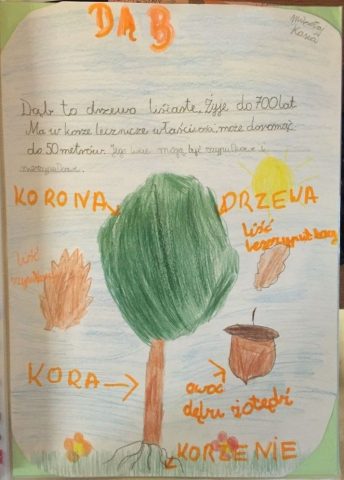 DĄB
Kasia
Dąb to drzewo liściaste. Żyje do 700 lat
Ma w korze lecznicze właściwości, może dorosnąć
do 50 metrów. Jego liście mają być szypułkowe i
KORONA DRZEWA
liść
liść
KORA
owoc
dębu żołędzi
KORZENIE